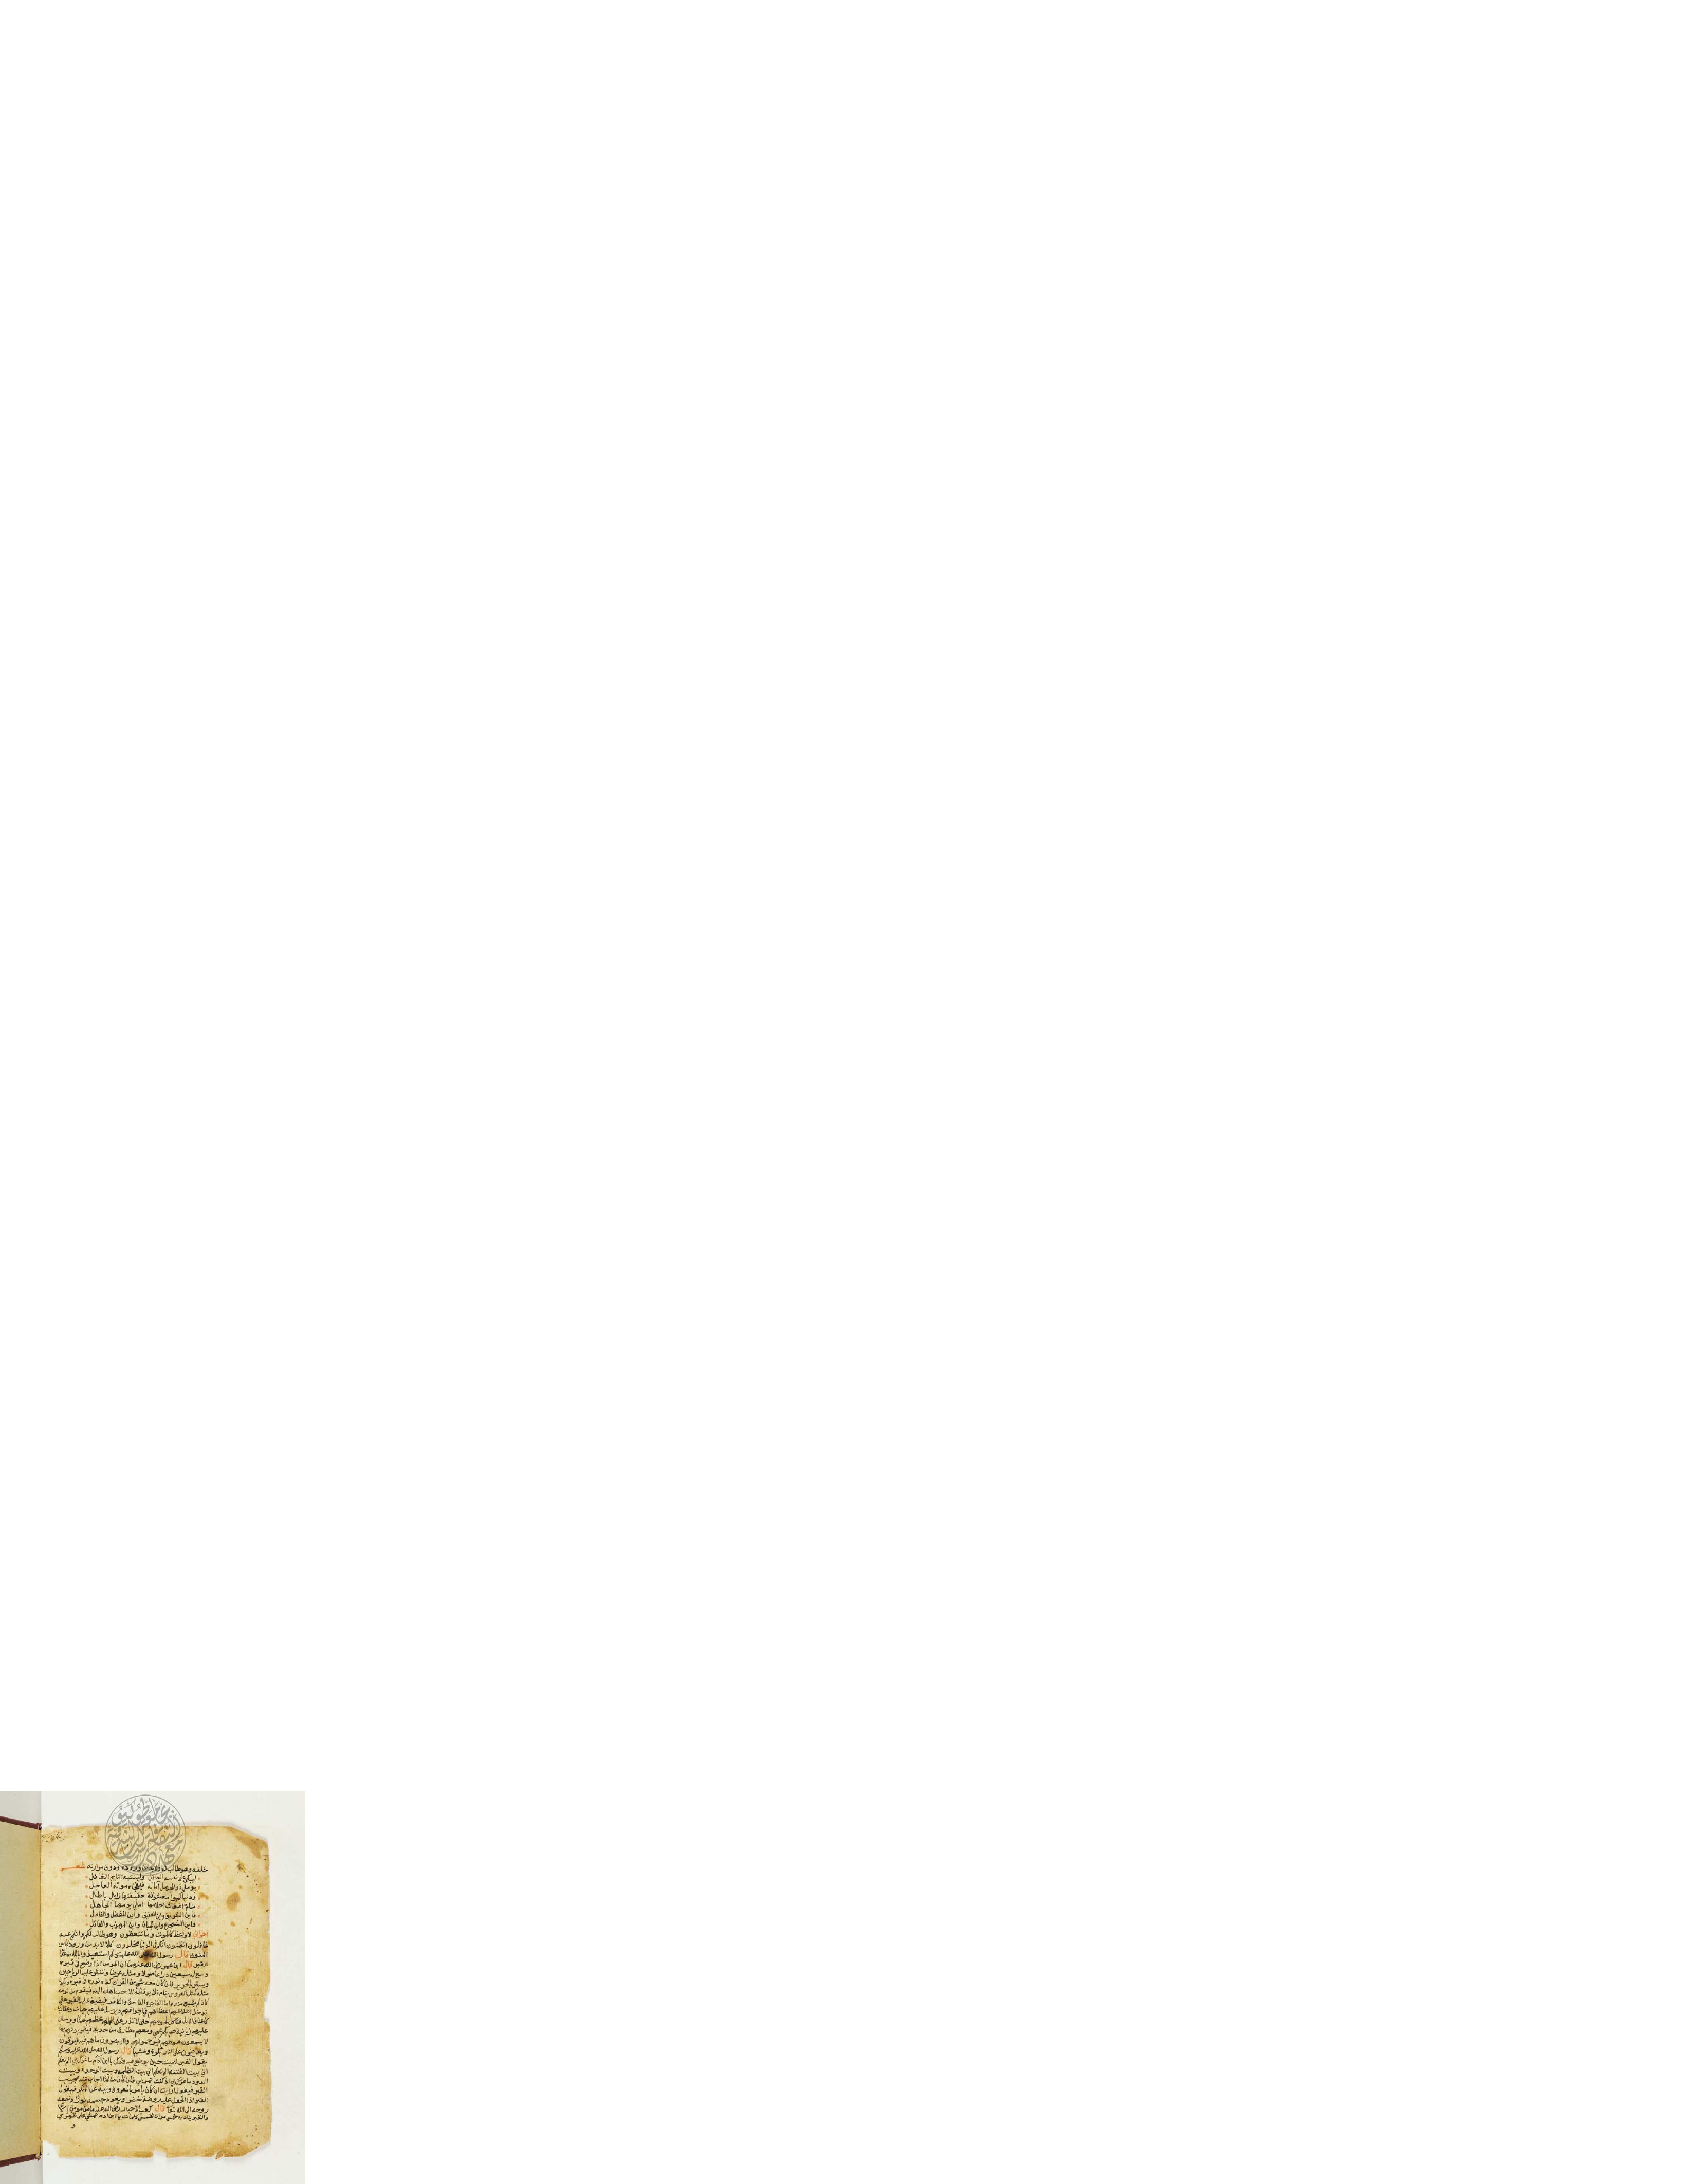 خلفه وهو طالب له ولا بد من وروده ودوق مرارته شعر
ليبكي لنفسه العاقل ولينتبه النايم الغافل
يومل والمومل آماله موته العاجل
ودنياكموا معشوقة حقيقتها زايل باطل
منام اضغاث احلامها اماني يوسها الجاهل
فاين الشقيق واين الصديق واين المفضل والفاضل
واين الشجاع واين الجبان واين المجرب والعاقل
اخواني لا واعظ كالموت وما تتعظون وهو طالب لكم وانتم عنه
غافلون اتظنون انكم في الدنيا مخلدون كلا لا بد من ورود كاس
المنون قال رسول الله صلى الله عليه وسلم استعيذوا بالله من عذاب
القبر قال ابن عمر رضي الله عنهما ان المومن اذا وضع في قبره
وسع له سبعين ذراعا طولا ومثله عرضا وتنثر عليه الرياحين
ويستر بالحرير فان كان معه شي من القران كفاه نوره في قبره
مثله كمثل العروس ينام فلا يوقظه الا احب اهله اليه فيقوم من نومه
كانه لم يشبع منه واما الفاجر والفاسق والكافر فيضيق عليه القبر حتى
تدخل اضلاعهم في اجوافهم ويرسل عليهم حيات
كاعناق الابل فتاكل لحومهم حتى لا تذر على عظمهم لحما ويرسل
عليهم زبانية صم بكم عمي ومعهم مطارق من حديد فيضربونهم بها
لا يسمعون صوتهم فيرحمونهم ولا يبصرون ما هم فيه فيرقون
ويعرضون على النار بكرة وعشيا قال رسول الله صلى الله عليه وسلم
يقول القبر للميت حين يوضع فيه ويحك يا ابن ادم ما غرك بي الم تعلم
اني بيت الفتنة الم تعلم اني بيت الظلمة وبيت الوحدة وبيت
الدود ما غرك بي اذ كنت تمر بي فان كان صالحا اجاب عنه مجيب
القبر فيقول ارايت ان كان يامر بالمعروف وينهى عن المنكر فيقول
القبر اذا اتحول عليه روضة خضرا ويعود جسمه نورا وتصعد
روحه الى الله تعالى قال كعب الاحبار رضي الله عنه ما من مومن الا
والقبر يناديه خمس مرات بخمس كلمات يا ابن ادم تمشي على ظهري
و